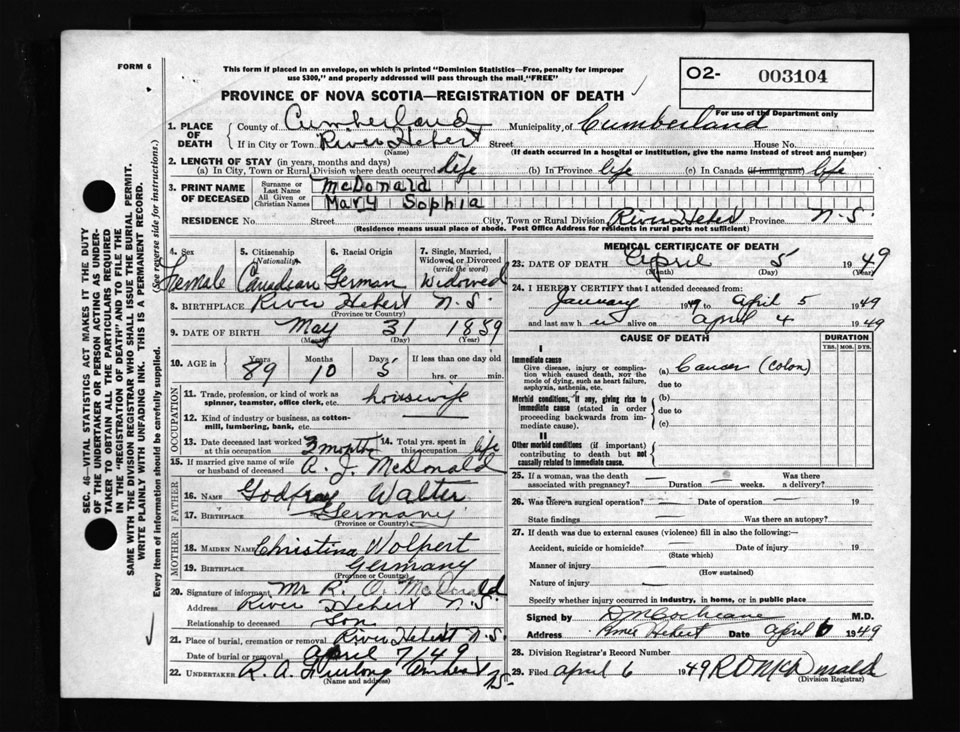 FORM 6
This form if placed in an envelope, on which is printed "Dominion Statistics—Free, penalty for improper
use $300," and properly addressed will pass through the mail "FREE"
PROVINCE OF NOVA SCOTIA—REGISTRATION OF DEATH
O2- 003104
For use of the Department only
1. PLACE OF DEATH
County of Cumberland Municipality of Cumberland
If in City or Town River Hebert Street House No.
(Name) (If death occurred in a hospital or institution, give the name instead of street and number)
2. LENGTH OF STAY (in years, months and days)
(a) In City, Town or Rural Division where death occurred life (b) In Province life (c) In Canada (if immigrant) life
3. PRINT NAME OF DECEASED
Surname or Last Name McDonald
All Given or Christian Names Mary Sophia
RESIDENCE No. Street City, Town or Rural Division River Hebert Province N.S.
(Residence means usual place of abode. Post Office Address for residents in rural parts not sufficient)
4. Sex Female
5. Citizenship (Nationality) Canadian
6. Racial Origin German
7. Single, Married, Widowed or Divorced (write the word) Widowed
8. BIRTHPLACE River Hebert N.S.
(Province or Country)
9. DATE OF BIRTH May 31 1859
(Month) (Day) (Year)
10. AGE in Years 89 Months 10 Days 5 If less than one day old hrs. or min.
OCCUPATION
11. Trade, profession, or kind of work as spinner, teamster, office clerk, etc. housewife
12. Kind of industry or business, as cotton-mill, lumbering, bank, etc. —
13. Date deceased last worked at this occupation 3 months
14. Total yrs. spent in this occupation life
15. If married give name of wife or husband of deceased A. J. McDonald
FATHER
16. NAME Godfray Walter
17. BIRTHPLACE Germany
(Province or Country)
MOTHER
18. MAIDEN NAME Christina Wolpert
19. BIRTHPLACE Germany
(Province or Country)
20. Signature of informant Mr R. O. McDonald
Address River Hebert N.S.
Relationship to deceased Son
21. Place of burial, cremation or removal River Hebert N.S.
Date of burial or removal April 7/49
22. UNDERTAKER R. A. Furlong Amherst NS.
(Name and address)
MEDICAL CERTIFICATE OF DEATH
23. DATE OF DEATH April 5 1949
(Month) (Day) (Year)
24. I HEREBY CERTIFY that I attended deceased from:
January 1949 to April 5 1949
and last saw her alive on April 4 1949
CAUSE OF DEATH
DURATION
YRS. MOS. DYS.
I
Immediate cause
Give disease, injury or complication which caused death, NOT the mode of dying, such as heart failure, asphyxia, asthenia, etc.
(a) Cancer (colon)
due to
Morbid conditions, if any, giving rise to immediate cause (stated in order proceeding backwards from immediate cause).
(b)
due to
(c)
II
Other morbid conditions (if important) contributing to death but not causally related to immediate cause.
25. If a woman, was the death associated with pregnancy? — Duration — weeks. Was there a delivery? —
26. Was there a surgical operation? — Date of operation — 19
State findings — Was there an autopsy?
27. If death was due to external causes (violence) fill in also the following:—
Accident, suicide or homicide? — Date of injury 19
(State which)
Manner of injury —
(How sustained)
Nature of injury —
Specify whether injury occurred in industry, in home, or in public place
Signed by D M Cochrane M.D.
Address River Hebert Date April 6 1949
28. Division Registrar's Record Number
29. Filed April 6 1949 R O McDonald
(Division Registrar)
SEC. 46—VITAL STATISTICS ACT MAKES IT THE DUTY
OF THE UNDERTAKER OR PERSON ACTING AS UNDER-
TAKER TO OBTAIN ALL THE PARTICULARS REQUIRED
IN THE "REGISTRATION OF DEATH" AND TO FILE THE
SAME WITH THE DIVISION REGISTRAR WHO SHALL ISSUE THE BURIAL PERMIT.
WRITE PLAINLY WITH UNFADING INK. THIS IS A PERMANENT RECORD.
Every item of information should be carefully supplied. (See reverse side for instructions.)